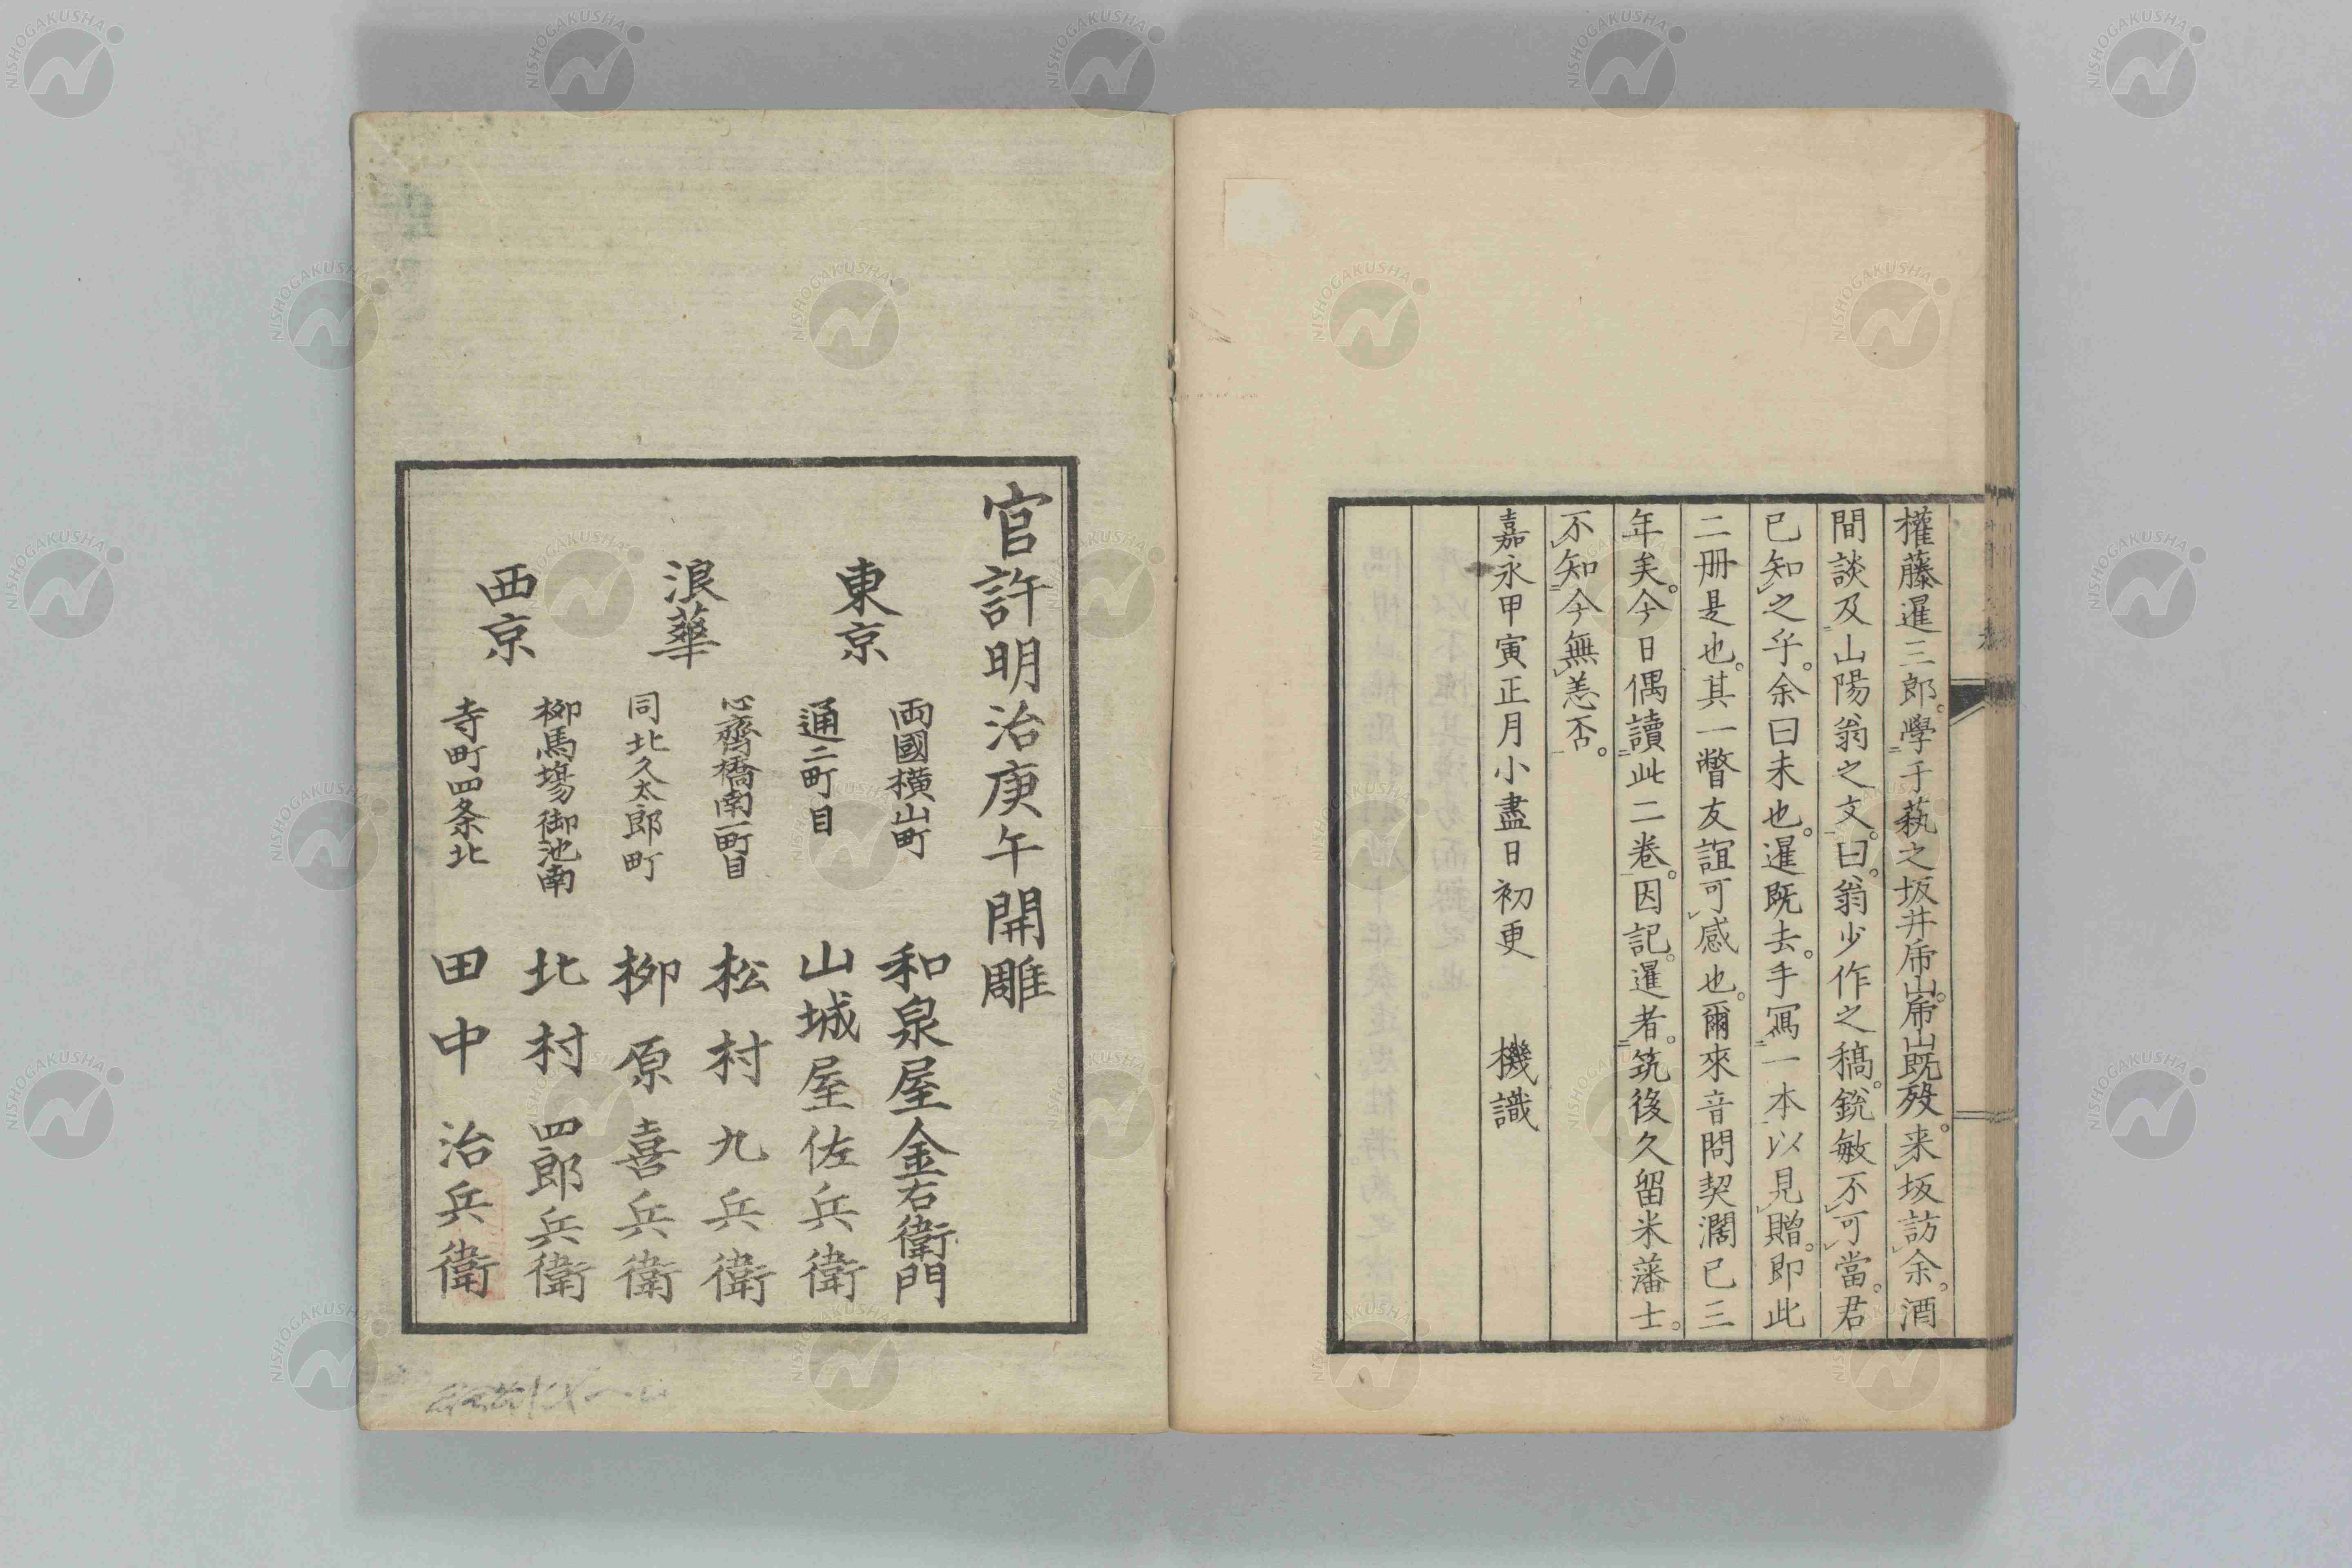 權藤暹三郎。學于蓺之坂井乕山。乕山既歿。来坂訪余。酒
間談及山陽翁之文。曰。翁少作之稿。銳敏不可當。君
已知之乎。余曰未也。暹既去。手寫一本以見贈。即此
二冊是也。其一瞥友誼可感也。爾來音問契濶已三
年矣。今日偶讀此二卷。因記。暹者。筑後久留米藩士。
不知今無恙否。
嘉永甲寅正月小盡日初更 機識
官許明治庚午開雕
東京
両國橫山町 和泉屋金右衛門
通二町目 山城屋佐兵衛
浪華
心齋橋南一町目 松村九兵衛
同北久太郎町 栁原喜兵衛
西京
栁馬塲御池南 北村四郎兵衛
寺町四条北 田中治兵衛
NISHOGAKUSHA